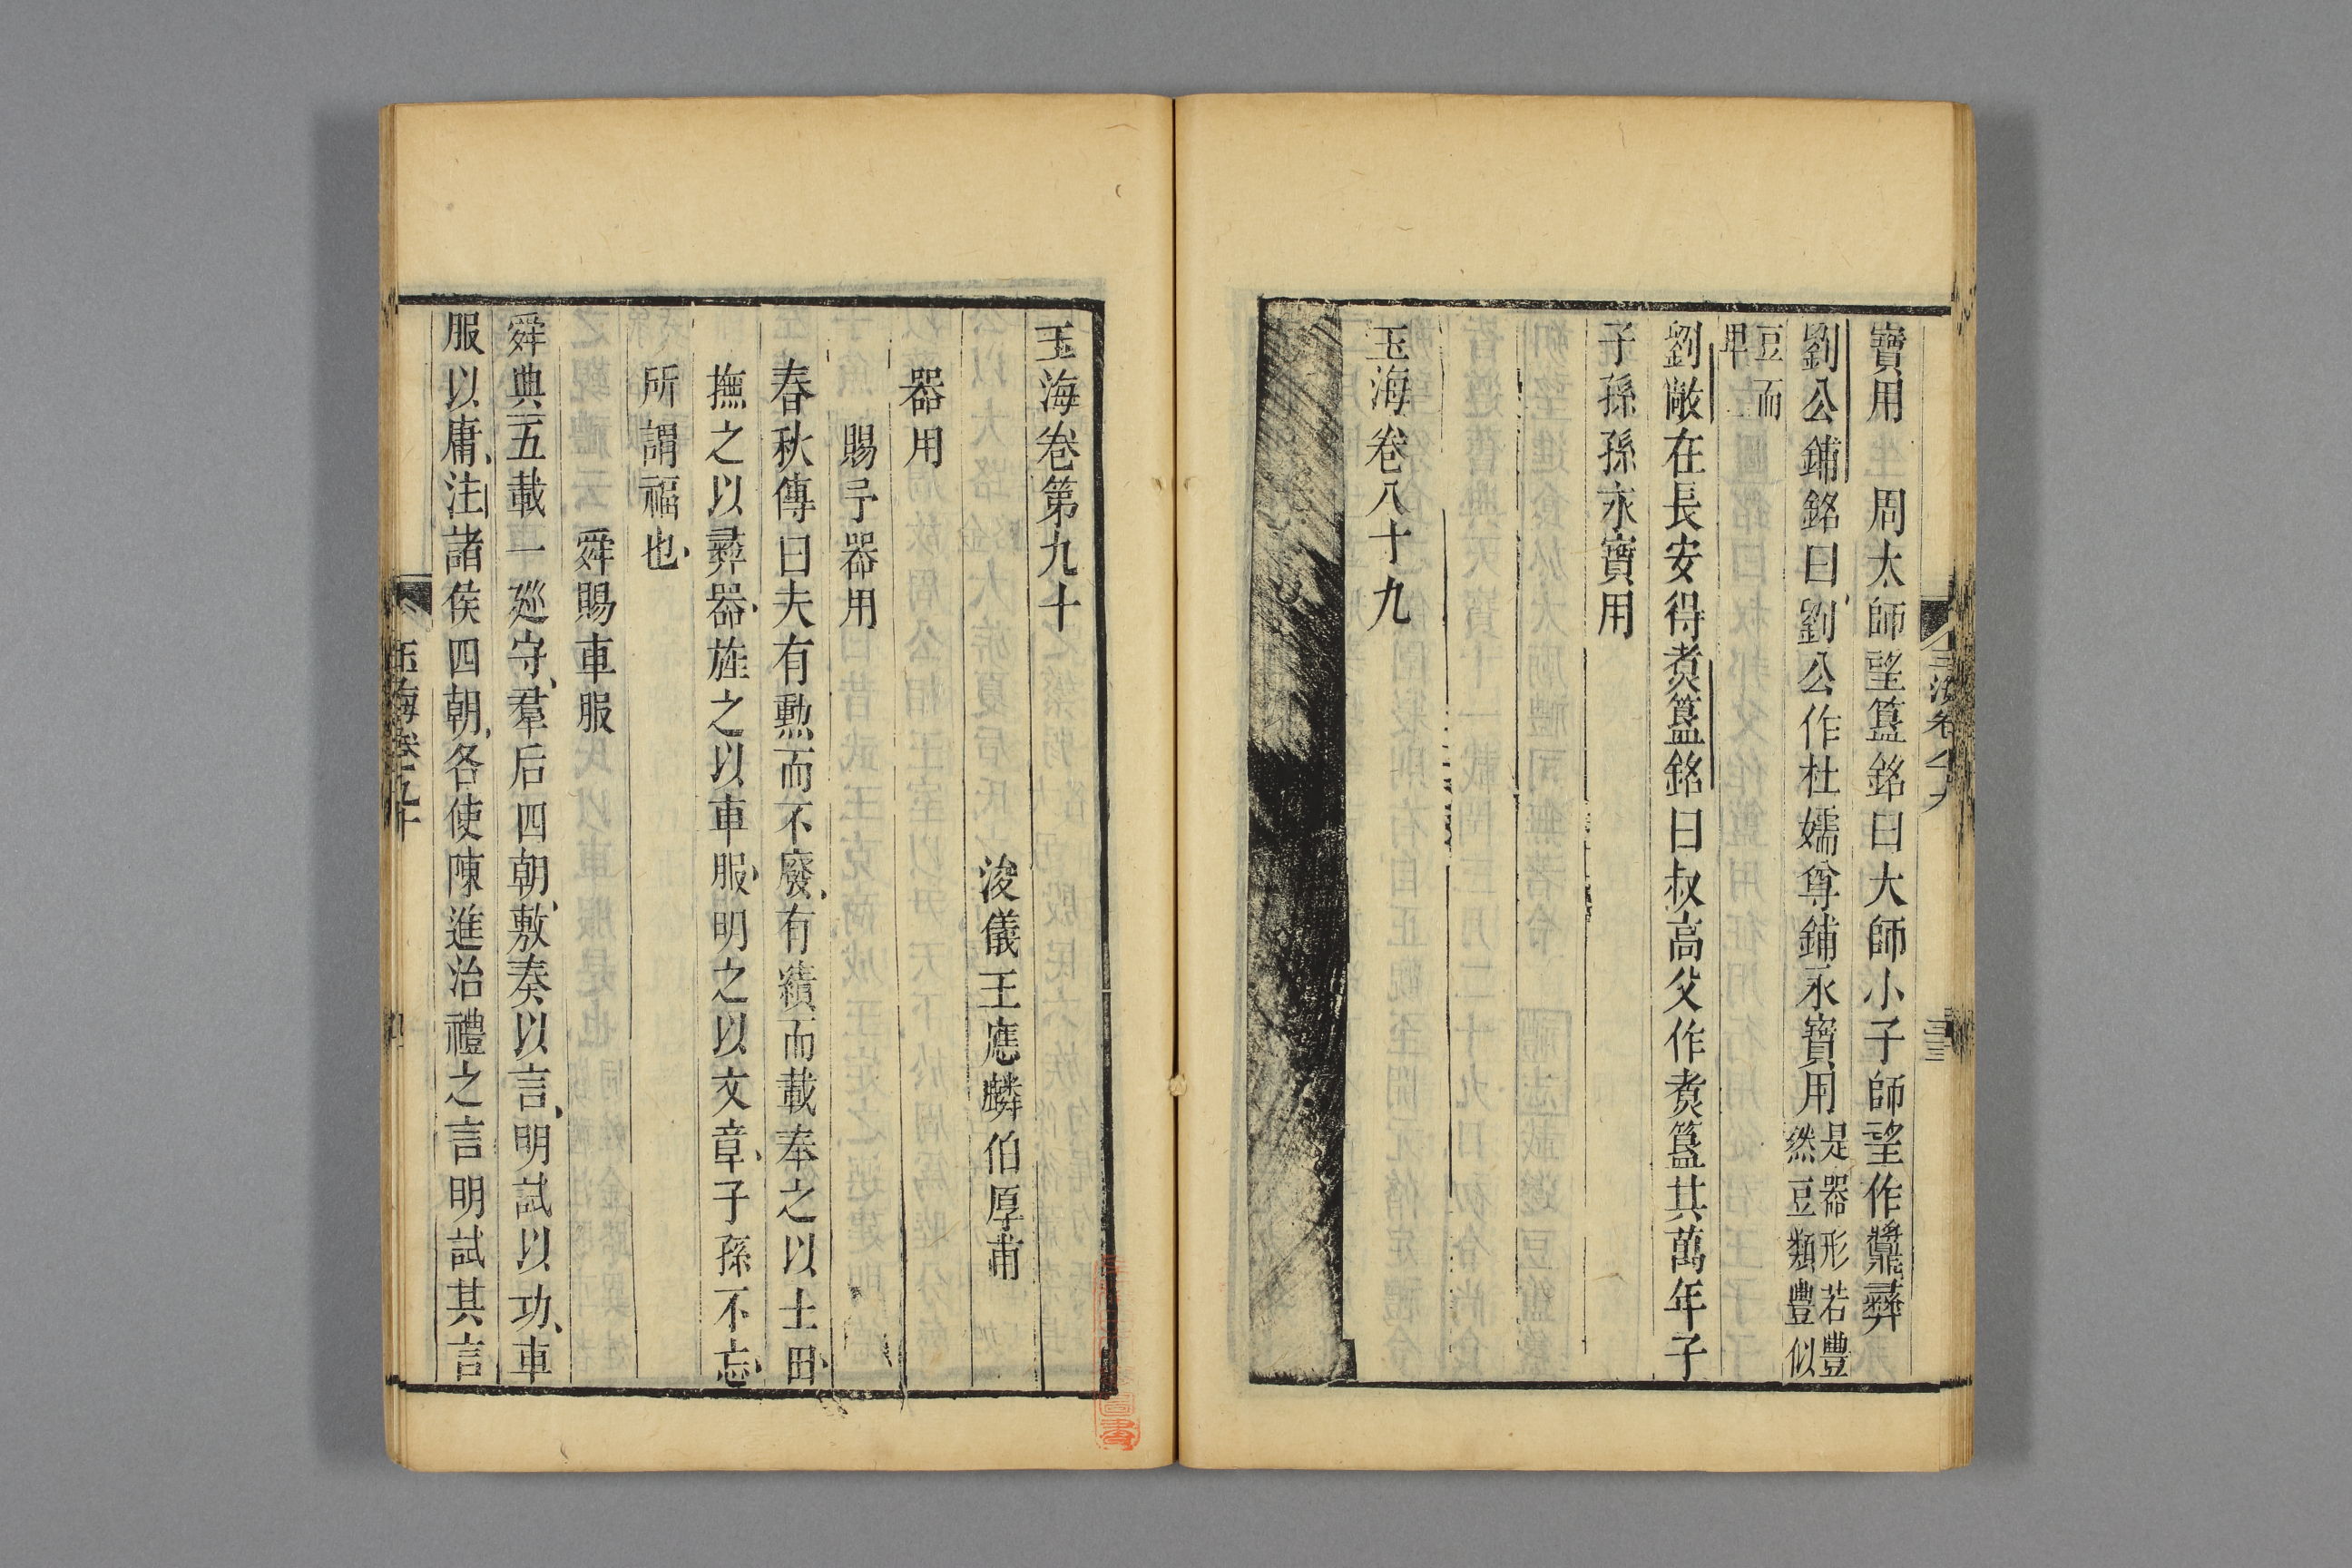 寶用　周太師望簋銘曰大師小子師望作鷰彝
劉公鋪銘曰劉公作杜嬬尊鋪永寶用是器形若豐
然豆類豐似
豆而
卑
劉敞在長安得煑簋銘曰叔高父作煑簋其萬年子
子孫孫永寶用
玉海卷八十九
玉海卷第九十
浚儀王應麟伯厚甫
器用
賜予器用
春秋傳曰夫有勲而不廢有績而載奉之以土田
撫之以彛器旌之以車服明之以文章子孫不忘
所謂福也
舜賜車服
舜典五載一廵守羣后四朝敷奏以言明試以功車
服以庸注諸侯四朝各使陳進治禮之言明試其言
玉海卷九十